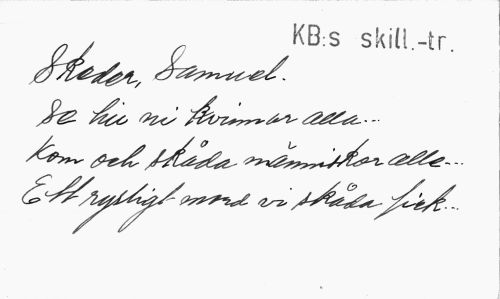 KB:s skill.-tr.
Skeder, Samuel.
Se hit ni kvinnor alla...
Kom och skåda människor alla...
Ett rysligt mord vi skåda fick...